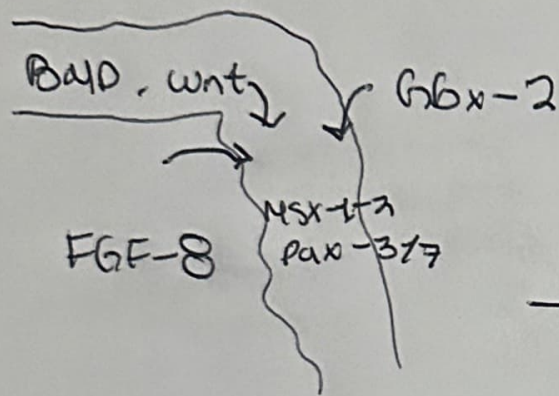 BMP. Wnt
Gbx-2
FGF-8
Msx-1-2
Pax-3/7